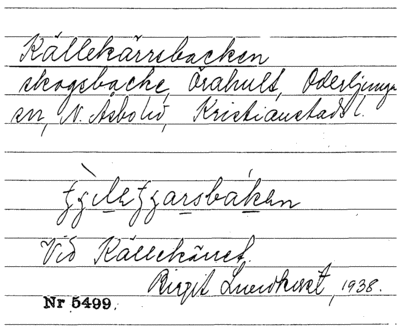 Källekärrsbacken
skogsbacke, Örahult, Oderljunga
sn, N. Åsbo hd, Kristianstads l.
Vid Källekärret.
Birgit Lundkvist, 1938.
Nr 5499.